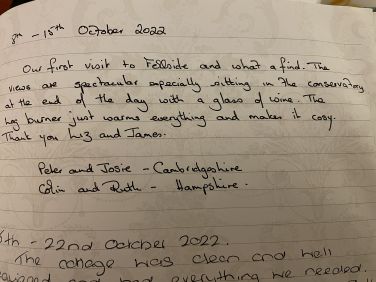 8th - 15th October 2022
Our first visit to Fellside and what a find. The
views are spectacular especially sitting in the conservatory
at the end of the day with a glass of wine. The
log burner just warms everything and makes it cosy.
Thank you Liz and James.
Peter and Josie - Cambridgeshire
Colin and Ruth - Hampshire.
5th - 22nd October 2022.
The cottage was clean and well
equipped and had everything we needed.